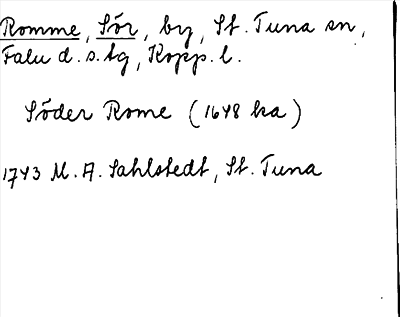 Romme, Sör, by, St. Tuna sn,
Falu d.s.tg, Kopp. l.
Söder Rome (1648 ka)
1743 M. A. Sahlstedt, St. Tuna